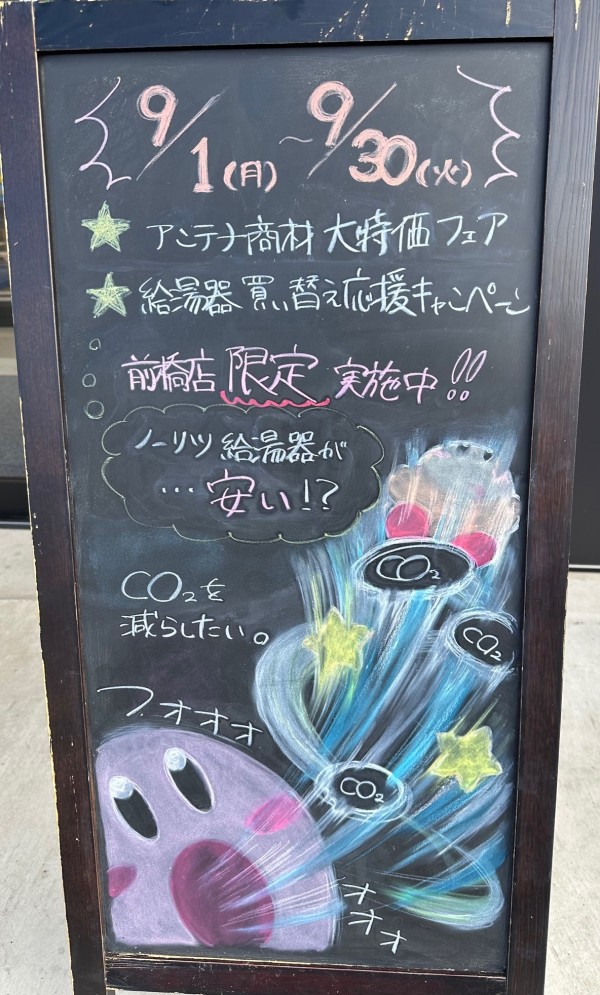 9/1(月)～9/30(火)
アンテナ商材 大特価フェア
給湯器 買い替え応援キャンペーン
前橋店 限定 実施中!!
ノーリツ 給湯器が
…安い!?
CO₂
CO₂を
減らしたい。
CO₂
フォオオオ
CO₂
オオオオ